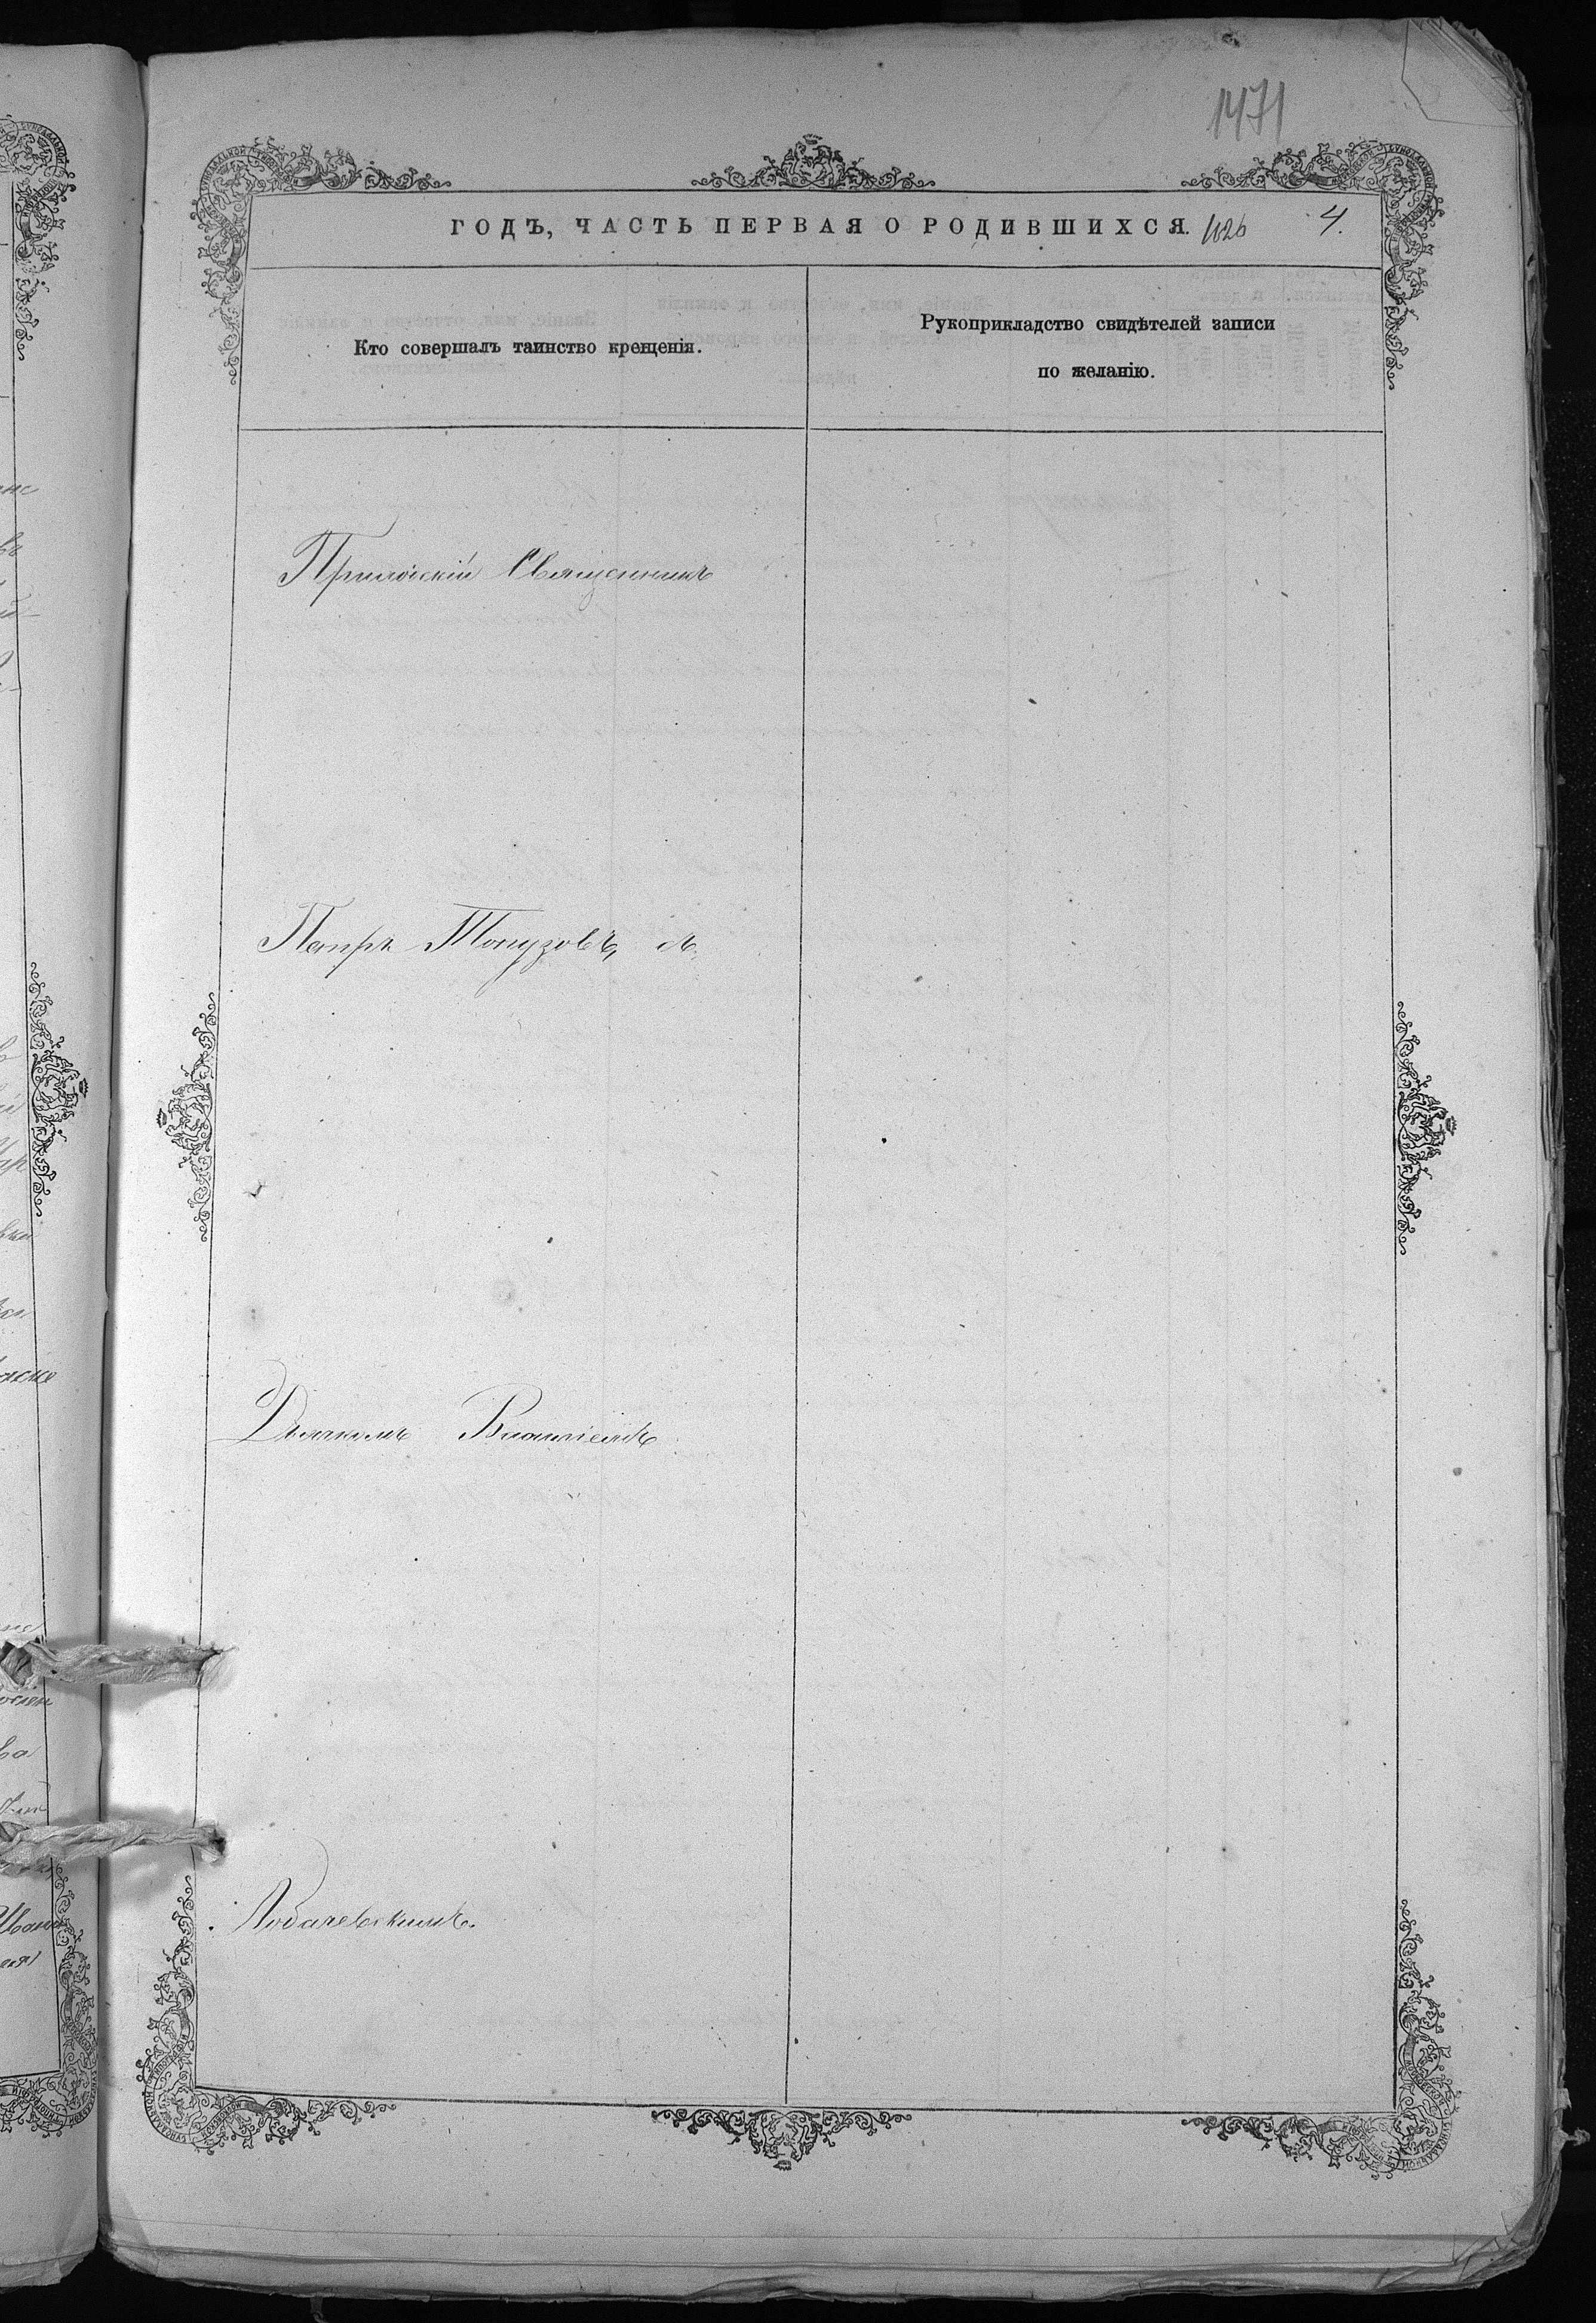 1471
ГОДЪ, ЧАСТЬ ПЕРВАЯ О РОДИВШИХСЯ. 1026 4.
Кто совершалъ таинство крещенія.
Рукоприкладство свидѣтелей записи
по желанію.
Священникъ
Петръ Топузовъ, съ
Дьякомъ
Лобачевскимъ.